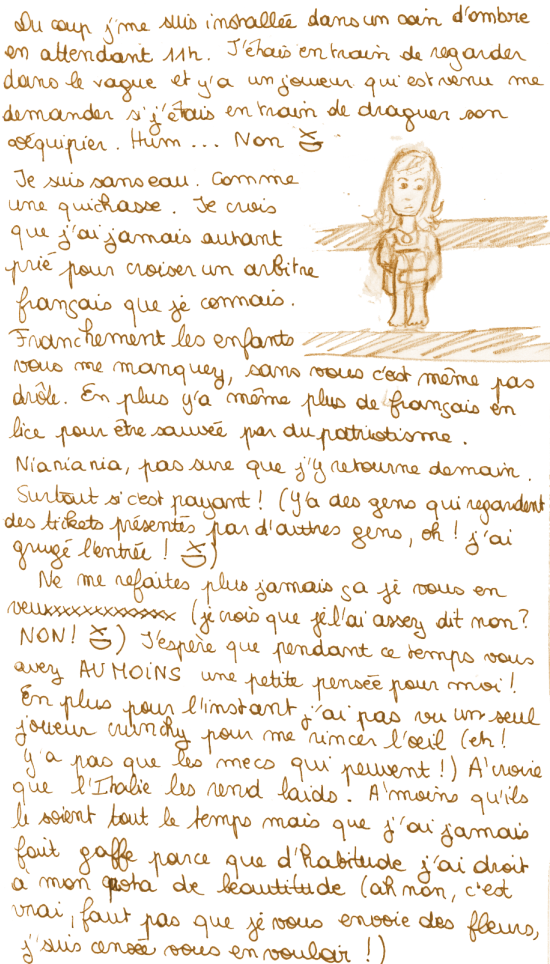 Du coup j'me suis installée dans un coin d'ombre
en attendant 11h. J'étais en train de regarder
dans le vague et y'a un joueur qui est venu me
demander si j'étais en train de draguer son
coéquipier. Hum ... Non
Je suis sans eau. Comme
une quichasse. Je crois
que j'ai jamais autant
prié pour croiser un arbitre
français que je connais.
Franchement les enfants
vous me manquez, sans vous c'est même pas
drôle. En plus y'a même plus de français en
lice pour être sauvée par du patriotisme.
Nianiania, pas sure que j'y retourne demain.
Surtout si c'est payant ! (Y'a des gens qui regardent
des tickets présentés par d'autres gens, oh ! j'ai
grugé l'entrée !)
Ne me refaites plus jamais ça je vous en
veuxxxxxxxxxxxxxx (je crois que je l'ai assez dit non ?
NON !) J'espère que pendant ce temps vous
avez AU MOINS une petite pensée pour moi !
En plus pour l'instant j'ai pas vu un seul
joueur crunchy pour me rincer l'oeil (eh !
y'a pas que les mecs qui peuvent !) A croire
que l'Italie les rend laids. A moins qu'ils
le soient tout le temps mais que j'ai jamais
fait gaffe parce que d'habitude j'ai droit
à mon quota de beautitude (ah non, c'est
vrai, faut pas que je vous envoie des fleurs,
j'suis censée vous en vouloir !)